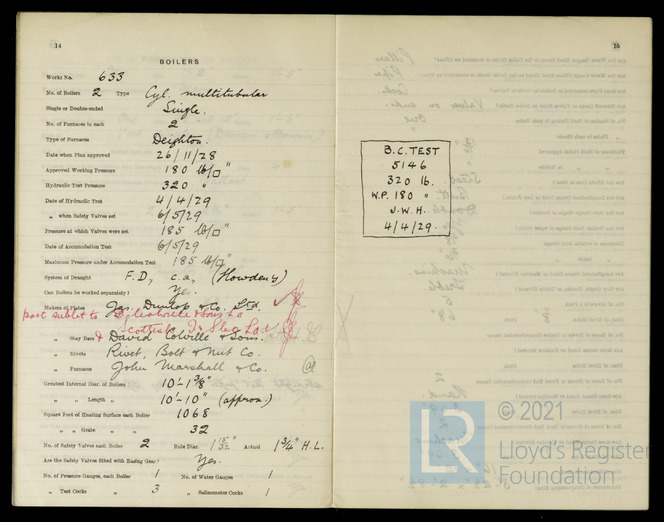 14
BOILERS
Works No. 633
No. of Boilers 2 Type Cyl. multitubular
Single or Double-ended Single.
No. of Furnaces in each 2
Type of Furnaces Deighton.
Date when Plan approved 26/11/28
Approved Working Pressure 180 lb/□"
Hydraulic Test Pressure 320 "
Date of Hydraulic Test 4/4/29
" when Safety Valves set 6/5/29
Pressure at which Valves were set 185 lb/□"
Date of Accumulation Test 6/5/29
Maximum Pressure under Accumulation Test 185 lb/□"
System of Draught F.D., c.a., (Howdens)
Can Boilers be worked separately? Yes.
Makers of Plates Jas. Dunlop & Co. Ltd.
part sublet to & Sons Ld
Scottish I & Steel Ld
" Stay Bars & David Colville & Sons.
" Rivets Rivet, Bolt & Nut Co.
" Furnaces John Marshall & Co.
Greatest Internal Diam. of Boilers 10'-1 3/8"
" " Length " 10'-10" (approx.)
Square Feet of Heating Surface each Boiler 1068
" " Grate " " 32
No. of Safety Valves each Boiler 2 Rule Diam. 1 15/32" Actual 1 3/4" H.L.
Are the Safety Valves fitted with Easing Gear? Yes.
No. of Pressure Gauges, each Boiler 1 No. of Water Gauges 1
" Test Cocks " 3 " Salinometer Cocks 1
15
B.C. TEST
5146
320 lb.
W.P. 180 "
J.W.H.
4/4/29.
LR
© 2021
Lloyd's Register
Foundation